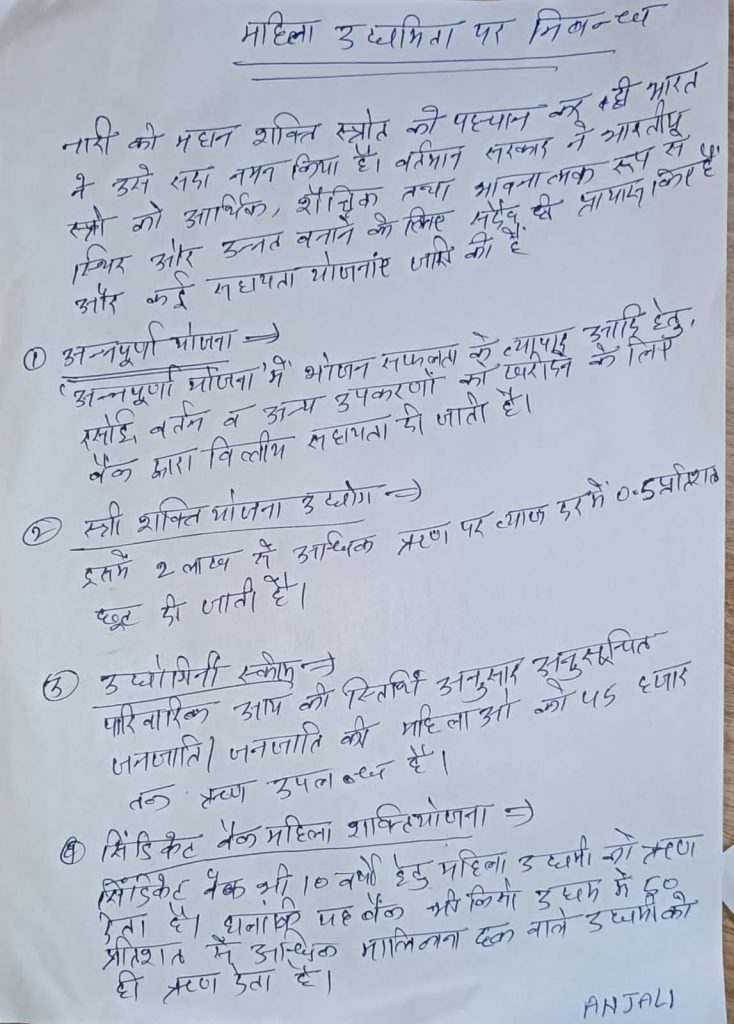 महिला उद्यमिता पर निबन्ध
नारी को महान शक्ति स्त्रोत को पहचान कर ही भारत
ने उसे सदा नमन किया है। वर्तमान सरकार ने भारतीय
स्त्री को आर्थिक, शैक्षिक तथा भावनात्मक रूप से
स्थिर और उन्नत बनाने के लिए सदैव ही प्रयास किए हैं
और कई सहायता योजनाएं जारी की हैं
① अन्नपूर्णा योजना ⇒
'अन्नपूर्णा योजना' में भोजन सफलता के व्यापार आदि हेतु,
रसोई, बर्तन व अन्य उपकरणों को खरीदने के लिए
बैंक द्वारा वित्तीय सहायता दी जाती है।
② स्त्री शक्ति योजना उद्योग ⇒
इसमें 2 लाख से अधिक ऋण पर ब्याज दर में 0.5 प्रतिशत
छूट दी जाती है।
③ उद्योगिनी स्कीम ⇒
पारिवारिक आय की स्तिथि अनुसार अनुसूचित
जनजाति/ जनजाति की महिलाओं को 45 हजार
तक ऋण उपलब्ध है।
④ सिंडिकेट बैंक महिला शक्तियोजना ⇒
सिंडिकेट बैंक भी 10 वर्षों हेतु महिला उद्यमी को ऋण
देता है। यह बैंक भी किसी उद्यम में 50
प्रतिशत से अधिक मालिकाना हक वाले उद्यमी को
ही ऋण देता है।
ANJALI